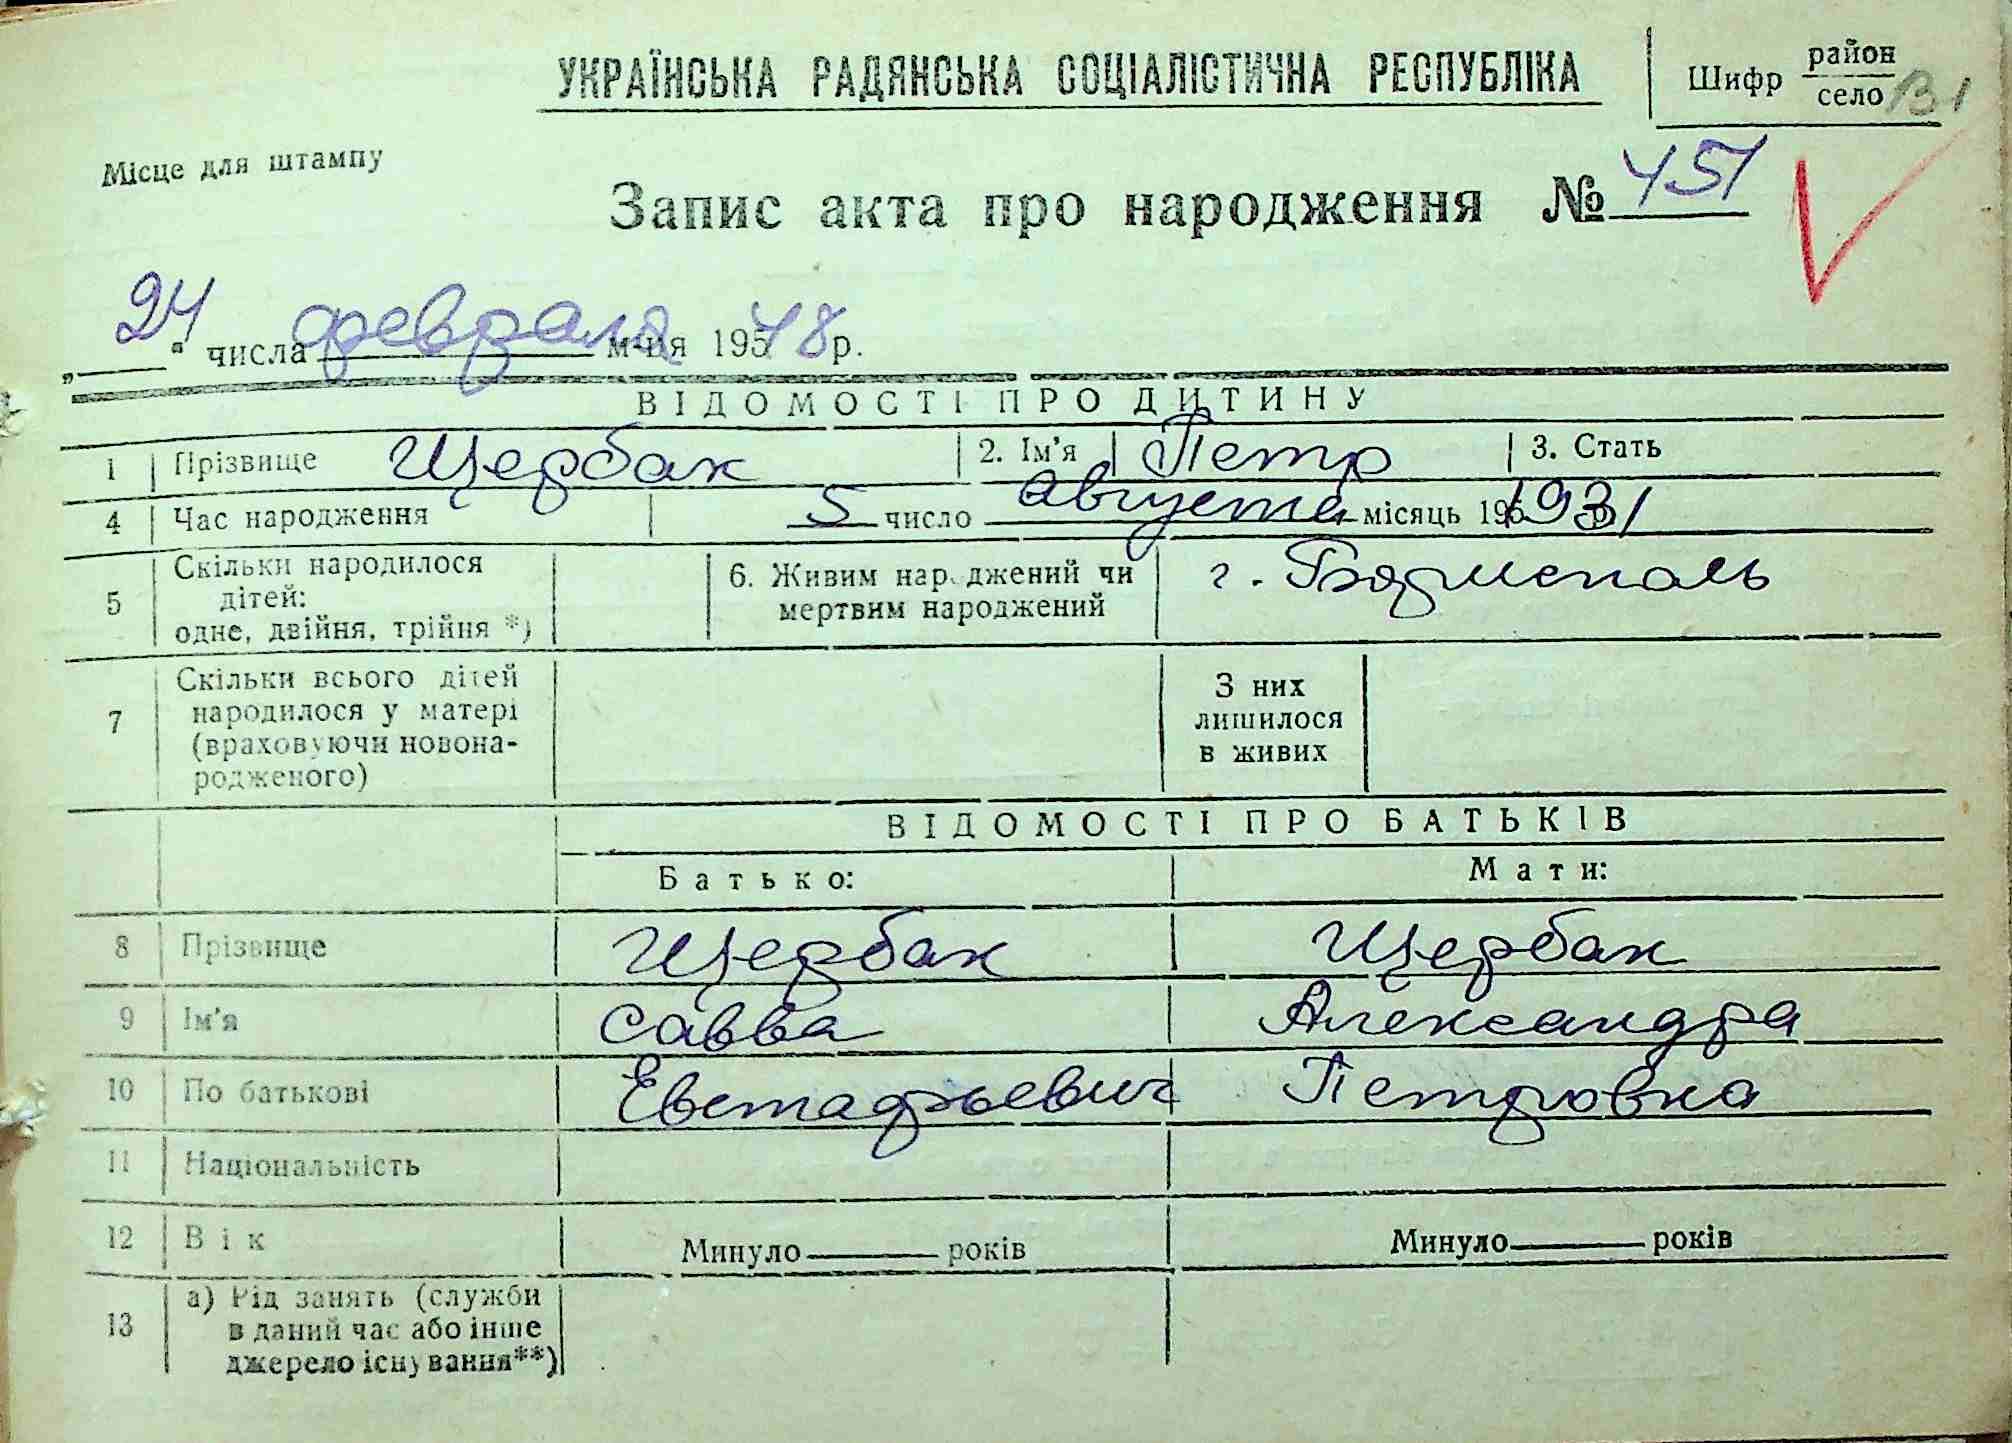 УКРАЇНСЬКА РАДЯНСЬКА СОЦІАЛІСТИЧНА РЕСПУБЛІКА
Шифр район
село 31
Місце для штампу
Запис акта про народження № 451
„24“ числа февраля м-ця 195 48 р.
ВІДОМОСТІ ПРО ДИТИНУ
1 Прізвище Щербак 2. Ім'я Петр 3. Стать
4 Час народження 5 число августа місяць 195 1931
5 Скільки народилося дітей: одне, двійня, трійня *) 6. Живим народжений чи мертвим народжений г. Борисполь
7 Скільки всього дітей народилося у матері (враховуючи новонародженого) З них лишилося в живих
ВІДОМОСТІ ПРО БАТЬКІВ
Батько: Мати:
8 Прізвище Щербак Щербак
9 Ім'я Савва Александра
10 По батькові Евстафьевич Петровна
11 Національність
12 Вік Минуло років Минуло років
13 а) Рід занять (служби
в даний час або інше
джерело існування**)